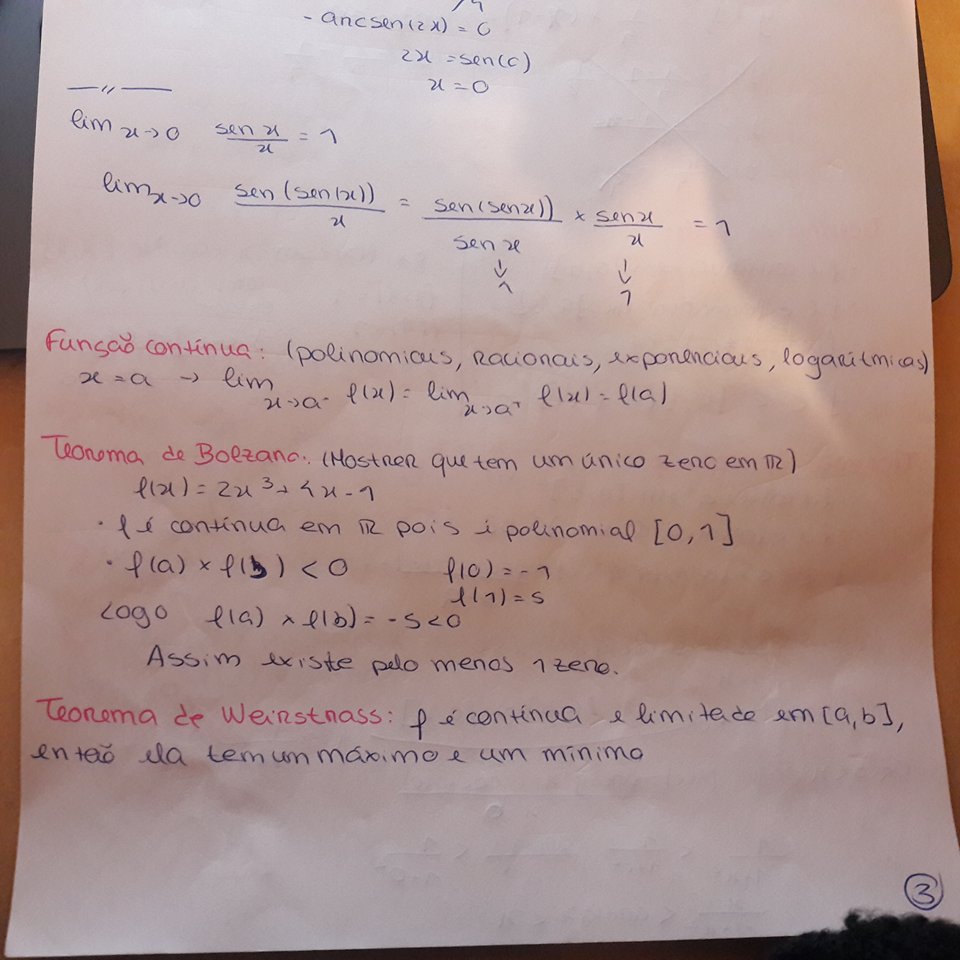 - arcsen(2x) = 0
2x = sen(0)
x = 0
lim x→0 sen x / x = 1
lim x→0 sen(sen(x)) / x = sen(senx)) / sen x × sen x / x = 1
↓ ↓
1 1
Função contínua: (polinomiais, racionais, exponenciais, logarítmicas)
x = a → lim x→a⁻ f(x) = lim x→a⁺ f(x) = f(a)
Teorema de Bolzano: (Mostrar que tem um único zero em ℝ)
f(x) = 2x³ + 4x - 1
· f é contínua em ℝ pois é polinomial [0,1]
· f(a) × f(b) < 0 f(0) = -1
f(1) = 5
Logo f(a) × f(b) = -5 < 0
Assim existe pelo menos 1 zero.
Teorema de Weirstrass: f é contínua e limitada em [a,b],
então ela tem um máximo e um mínimo
3